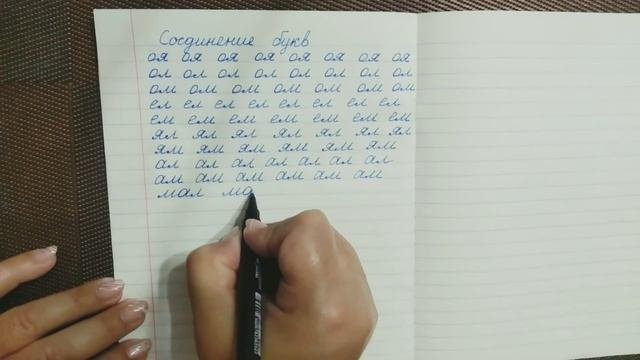 Соединение букв
оя оя оя оя оя оя оя оя
ол ол ол ол ол ол ол ол
ом ом ом ом ом ом ом
ел ел ел ел ел ел ел ел
ем ем ем ем ем ем ем
ял ял ял ял ял ял ял
ям ям ям ям ям ям
ал ал ал ал ал ал ал
ам ам ам ам ам ам
мал ма